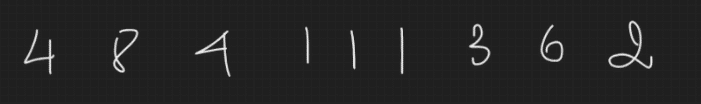 4 8 4 1 1 1 3 6 2